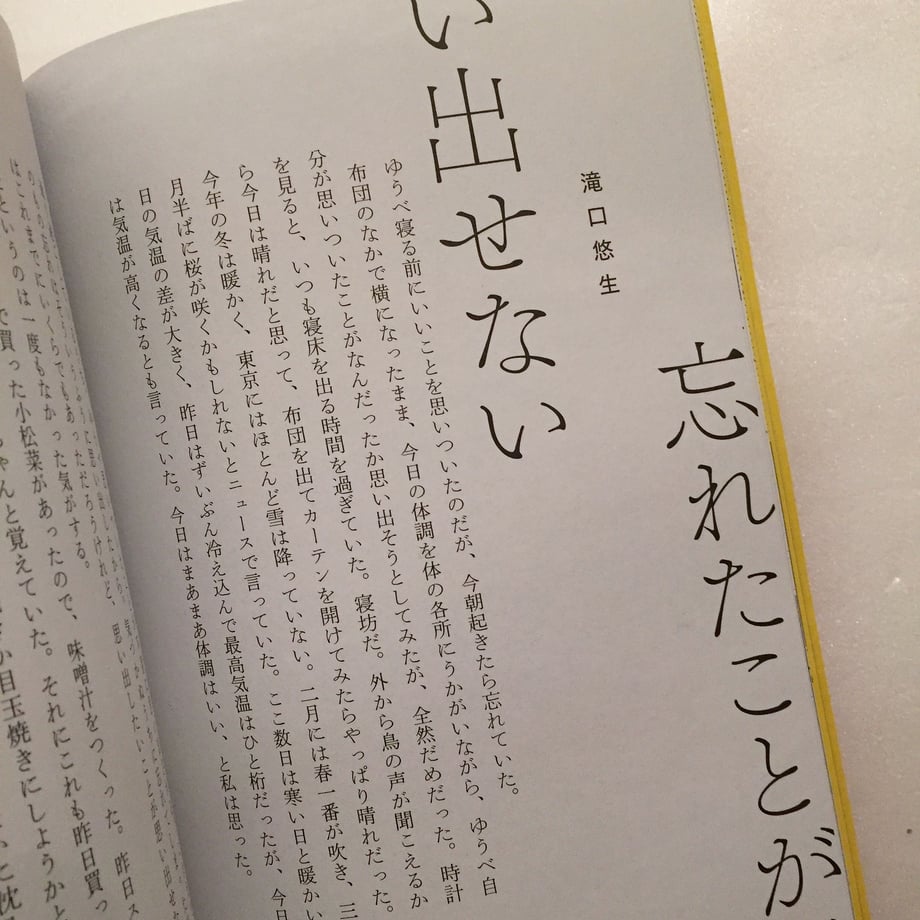 忘れたことが
い出せない
滝口悠生
ゆうべ寝る前にいいことを思いついたのだが、今朝起きたら忘れていた。
布団のなかで横になったまま、今日の体調を体の各所にうかがいながら、ゆうべ自
分が思いついたことがなんだったか思い出そうとしてみたが、全然だめだった。時計
を見ると、いつも寝床を出る時間を過ぎていた。寝坊だ。外から鳥の声が聞こえるか
ら今日は晴れだと思って、布団を出てカーテンを開けてみたらやっぱり晴れだった。
今年の冬は暖かく、東京にはほとんど雪は降っていない。二月には春一番が吹き、三
月半ばに桜が咲くかもしれないとニュースで言っていた。ここ数日は寒い日と暖かい
日の気温の差が大きく、昨日はずいぶん冷え込んで最高気温はひと桁だったが、今日
は気温が高くなるとも言っていた。今日はまあまあ体調はいい、と私は思った。
はこれまでにいくらでもあっただろうけれど、思い出したいことが思い出せ
というのは一度もなかった気がする。
で買った小松菜があったので、味噌汁をつくった。昨日ス
ちゃんと覚えていた。それにこれも昨日買っ
目玉焼きにしようかと